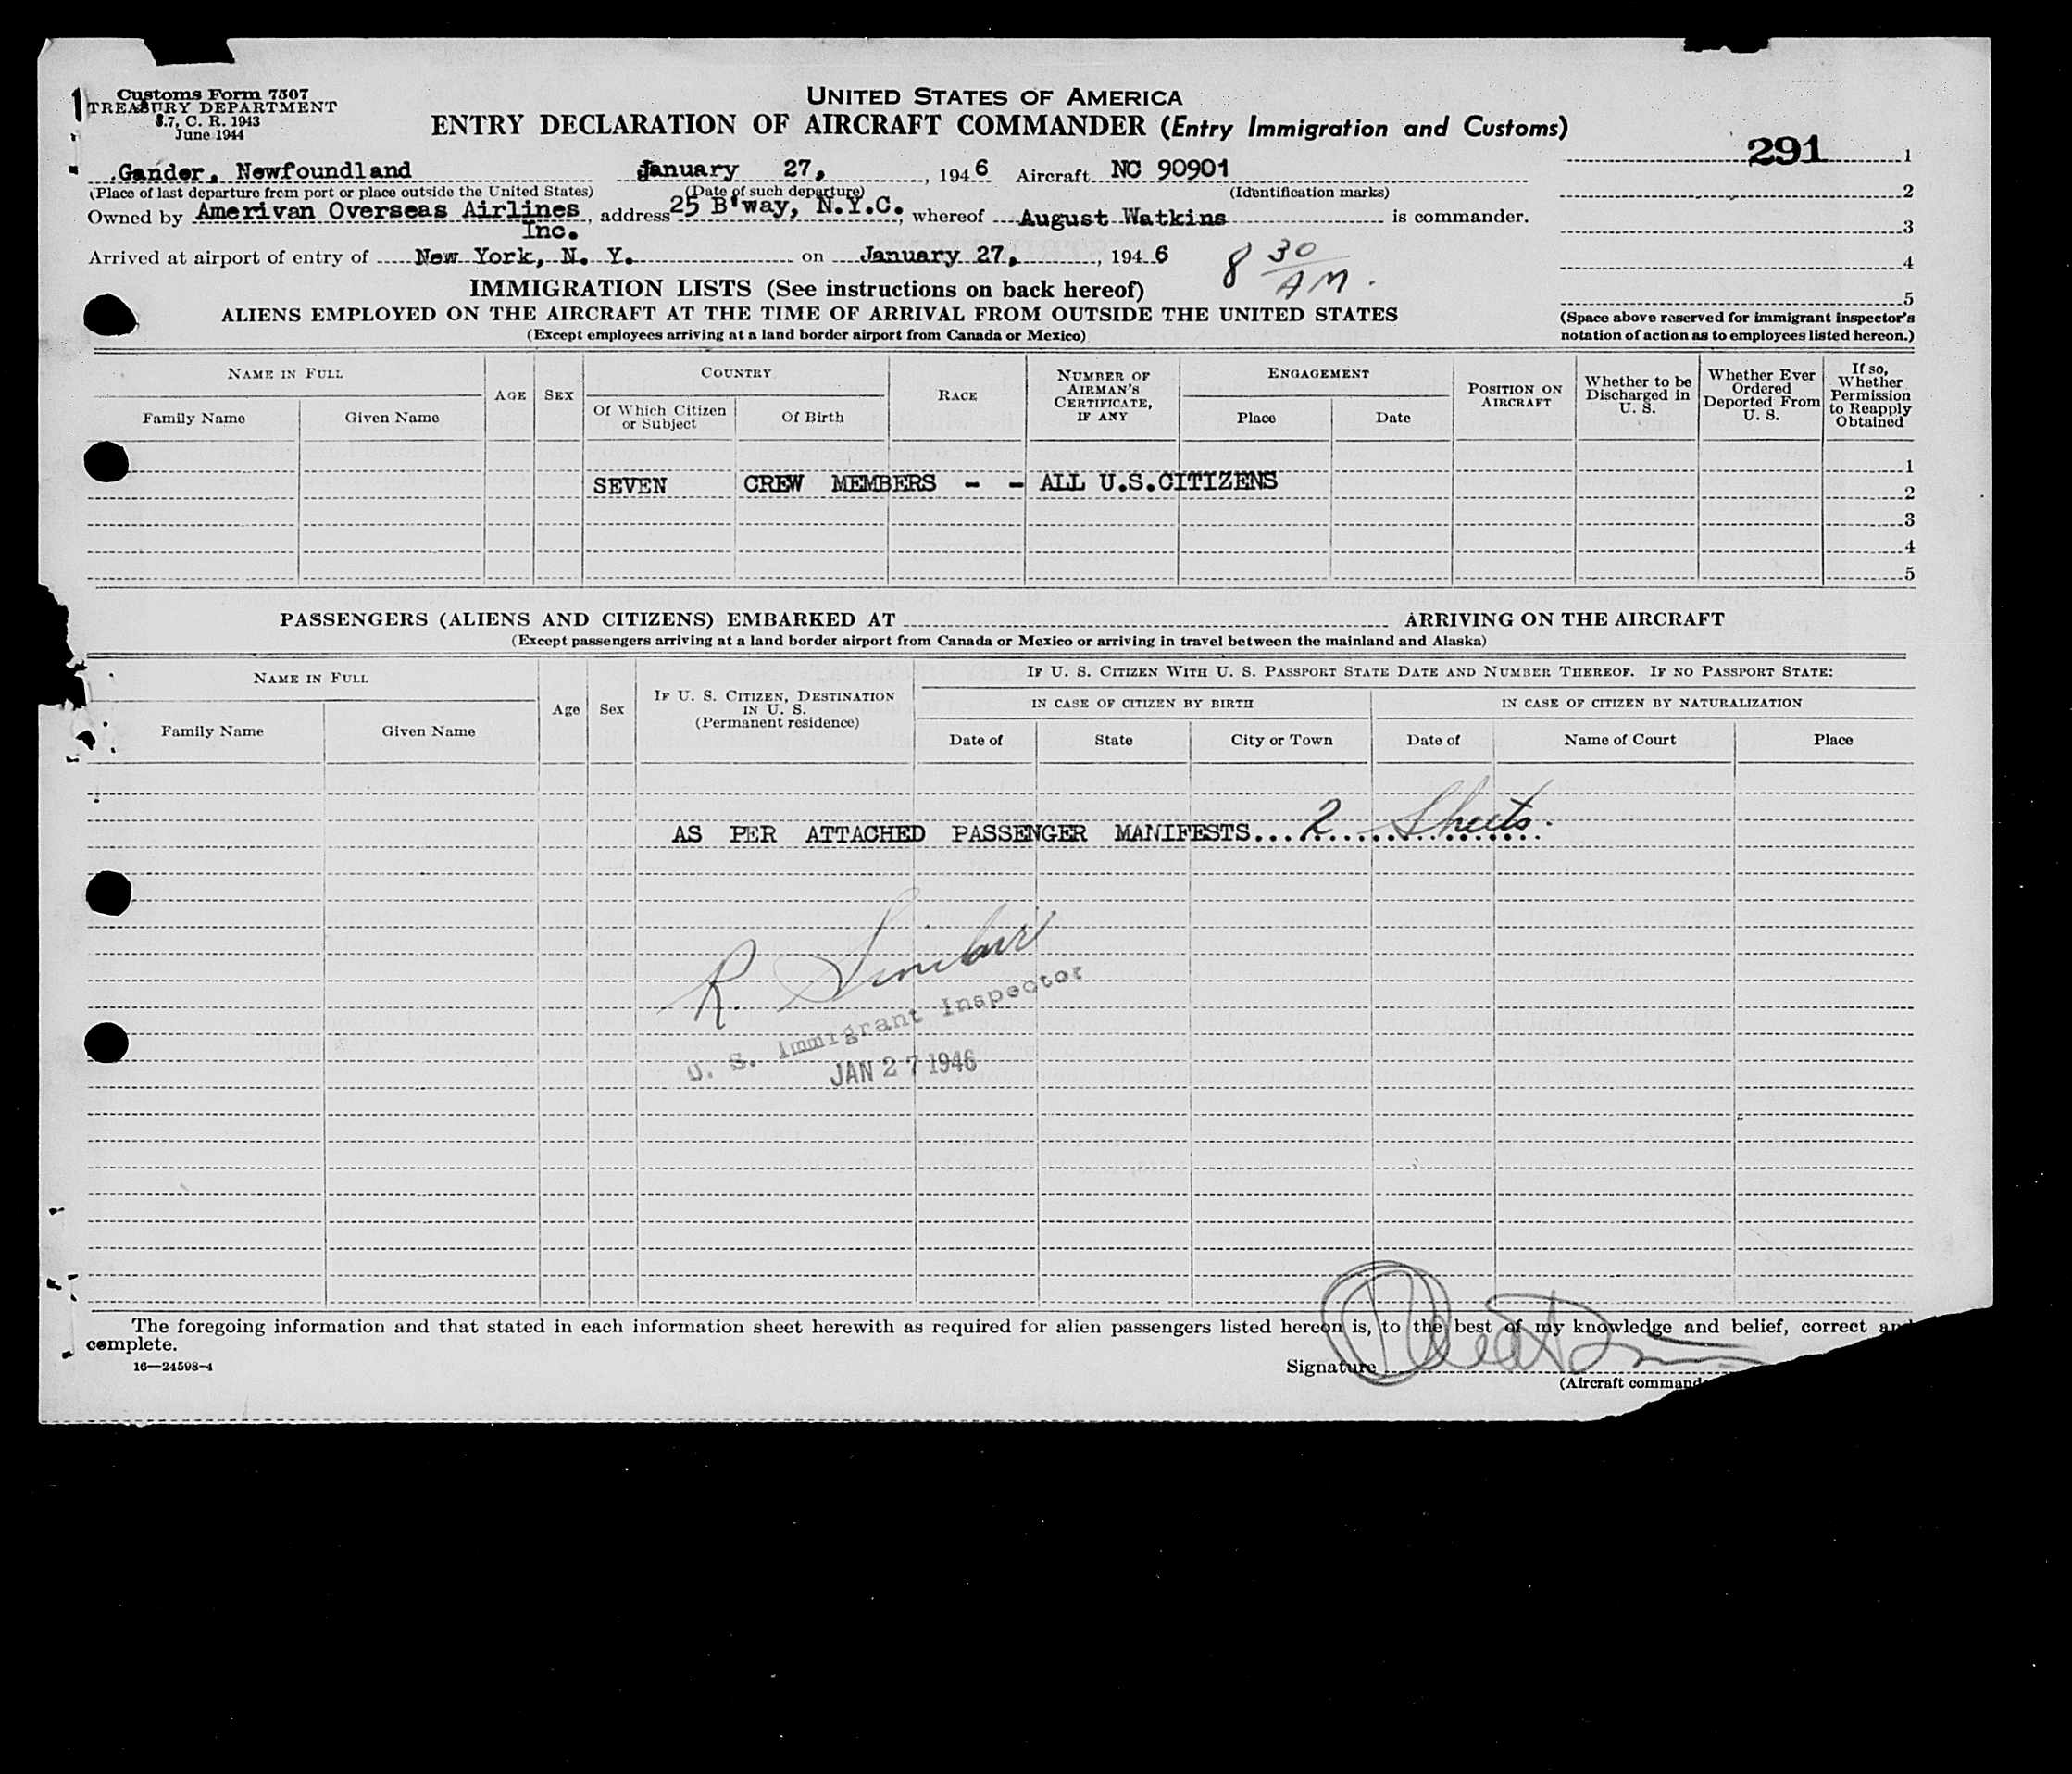 Customs Form 7507
TREASURY DEPARTMENT
8.7, C. R. 1943
June 1944
UNITED STATES OF AMERICA
ENTRY DECLARATION OF AIRCRAFT COMMANDER (Entry Immigration and Customs)
291 1
Gander, Newfoundland January 27, 1946 Aircraft NC 90901
(Place of last departure from port or place outside the United States) (Date of such departure) (Identification marks)
2
Owned by Amerivan Overseas Airlines Inc. , address 25 B'way, N.Y.C. , whereof August Watkins is commander.
3
Arrived at airport of entry of New York, N. Y. on January 27, , 1946 8 30/AM.
4
5
IMMIGRATION LISTS (See instructions on back hereof)
ALIENS EMPLOYED ON THE AIRCRAFT AT THE TIME OF ARRIVAL FROM OUTSIDE THE UNITED STATES
(Except employees arriving at a land border airport from Canada or Mexico)
(Space above reserved for immigrant inspector's
notation of action as to employees listed hereon.)
NAME IN FULL
Family Name
Given Name
AGE
SEX
COUNTRY
Of Which Citizen
or Subject
Of Birth
RACE
NUMBER OF
AIRMAN'S
CERTIFICATE,
IF ANY
ENGAGEMENT
Place
Date
POSITION ON
AIRCRAFT
Whether to be
Discharged in
U. S.
Whether Ever
Ordered
Deported From
U. S.
If so,
Whether
Permission
to Reapply
Obtained
1
SEVEN CREW MEMBERS - - ALL U.S.CITIZENS 2
3
4
5
PASSENGERS (ALIENS AND CITIZENS) EMBARKED AT ARRIVING ON THE AIRCRAFT
(Except passengers arriving at a land border airport from Canada or Mexico or arriving in travel between the mainland and Alaska)
NAME IN FULL
Family Name
Given Name
Age
Sex
IF U. S. CITIZEN, DESTINATION
IN U. S.
(Permanent residence)
IF U. S. CITIZEN WITH U. S. PASSPORT STATE DATE AND NUMBER THEREOF. IF NO PASSPORT STATE:
IN CASE OF CITIZEN BY BIRTH
IN CASE OF CITIZEN BY NATURALIZATION
Date of
State
City or Town
Date of
Name of Court
Place
AS PER ATTACHED PASSENGER MANIFESTS... 2 Sheets.
R. Sinclair
U. S. Immigrant Inspector
JAN 27 1946
The foregoing information and that stated in each information sheet herewith as required for alien passengers listed hereon is, to the best of my knowledge and belief, correct and
complete.
16—24598-4
Signature
(Aircraft command